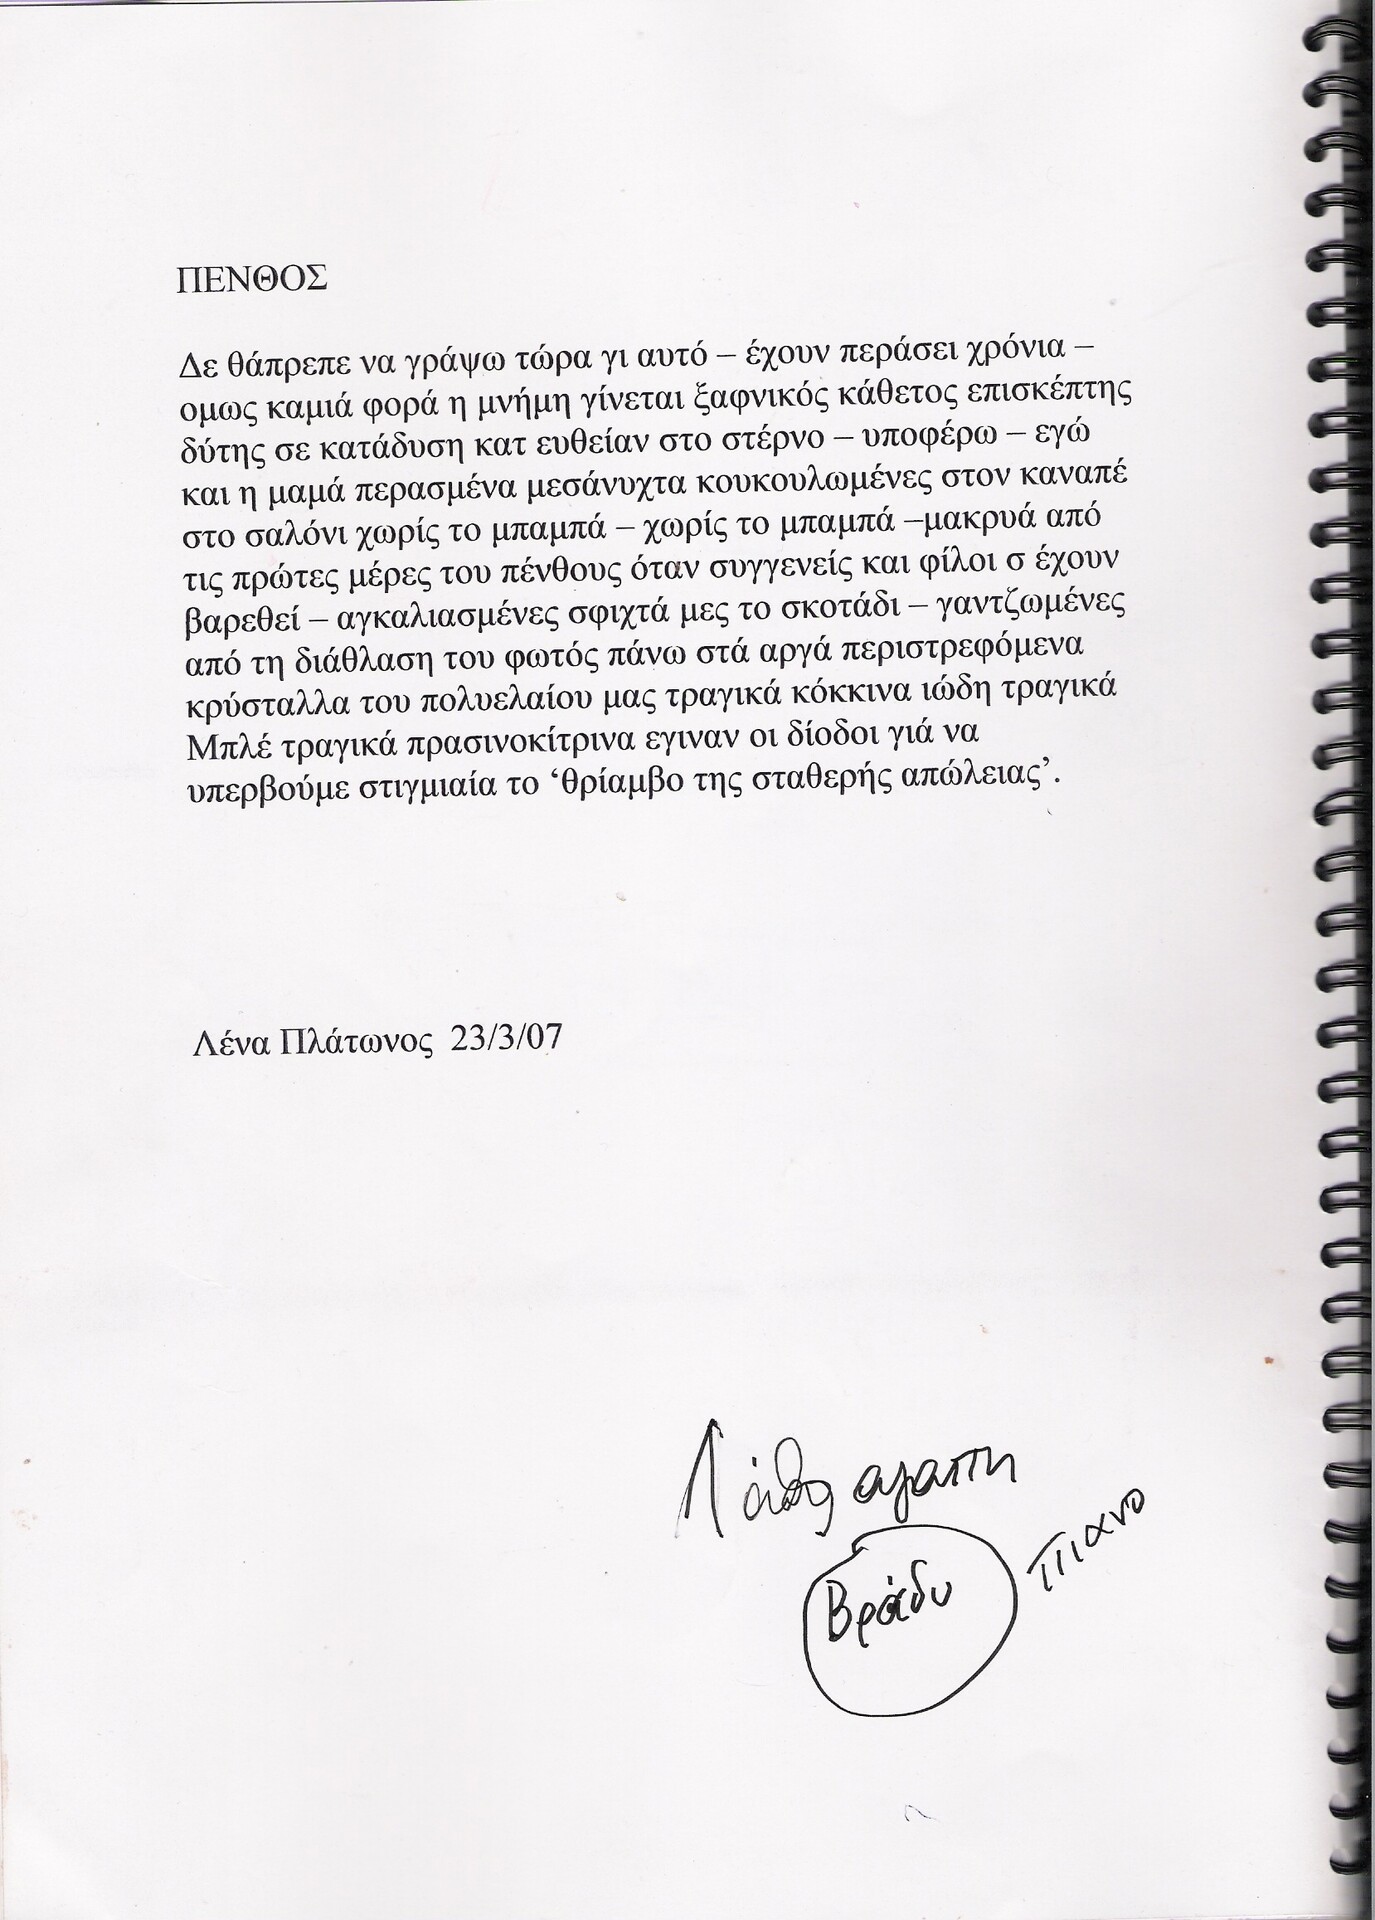 ΠΕΝΘΟΣ
Δε θάπρεπε να γράψω τώρα γι αυτό – έχουν περάσει χρόνια –
ομως καμιά φορά η μνήμη γίνεται ξαφνικός κάθετος επισκέπτης
δύτης σε κατάδυση κατ ευθείαν στο στέρνο – υποφέρω – εγώ
και η μαμά περασμένα μεσάνυχτα κουκουλωμένες στον καναπέ
στο σαλόνι χωρίς το μπαμπά – χωρίς το μπαμπά –μακρυά από
τις πρώτες μέρες του πένθους όταν συγγενείς και φίλοι σ έχουν
βαρεθεί – αγκαλιασμένες σφιχτά μες το σκοτάδι – γαντζωμένες
από τη διάθλαση του φωτός πάνω στά αργά περιστρεφόμενα
κρύσταλλα του πολυελαίου μας τραγικά κόκκινα ιώδη τραγικά
Μπλέ τραγικά πρασινοκίτρινα εγιναν οι δίοδοι γιά να
υπερβούμε στιγμιαία το ‘θρίαμβο της σταθερής απώλειας’.
Λένα Πλάτωνος 23/3/07
Λάθος αγάπη
Βράδυ πιανο